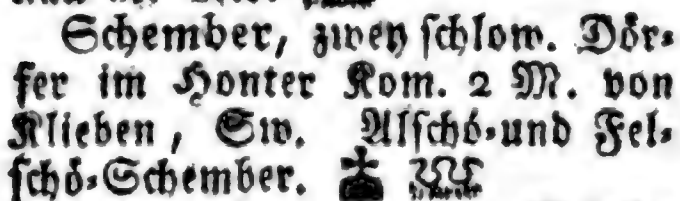 Schember, zwey schlow. Dör-
fer im Honter Kom. 2 M. von
Klieben, Sw. Alschö-und Fel-
schö-Schember.